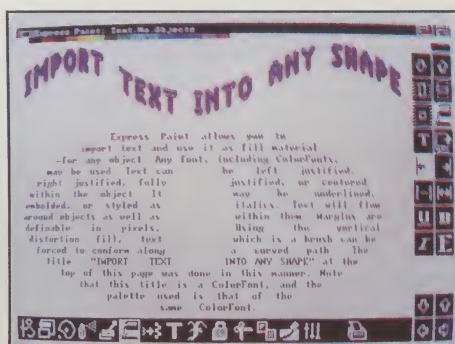 Express Paint: Text.No.Objects
IMPORT TEXT INTO ANY SHAPE
Express Paint allows you to
import text and use it as fill material
for any object Any font, including ColorFonts,
may be used Text can be left justified,
right justified, fully justified, or centered
within the object It may be underlined,
embolded, or styled as italics. Text will flow
around objects as well as within them Margins are
definable in pixels. Using the vertical
distortion fill, text which is a brush can be
forced to conform along a curved path The
title "IMPORT TEXT INTO ANY SHAPE" at the
top of this page was done in this manner. Note
that this title is a ColorFont, and the
palette used is that of the
same ColorFont.